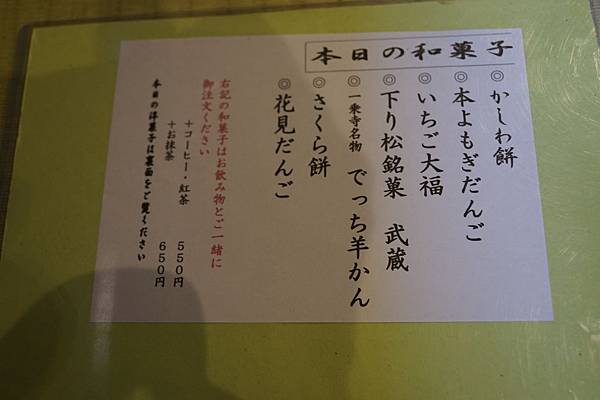 本日の和菓子
◎かしわ餅
◎本よもぎだんご
◎いちご大福
◎下り松銘菓　武蔵
◎一乗寺名物　でっち羊かん
◎さくら餅
◎花見だんご
右記の和菓子はお飲み物とご一緒に
御注文ください
＋コーヒー・紅茶　５５０円
＋お抹茶　６５０円
本日の洋菓子は裏面をご覧ください